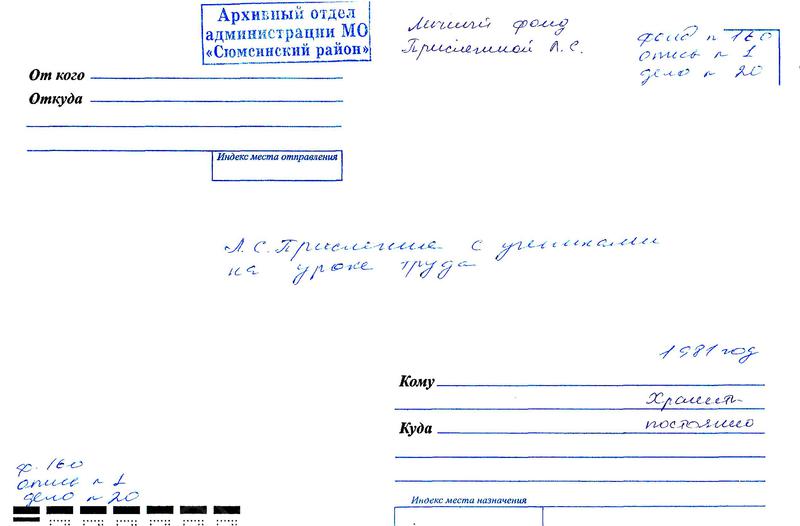 Архивный отдел
администрации МО
«Сюмсинский район»
Личный фонд
Прислегиной Л.С.
фонд № 160
опись № 1
дело № 20
От кого
Откуда
Индекс места отправления
Л.С. Прислегина с учениками
на уроке труда
1981 год
Кому
Хранить
Куда
постоянно
ф. 160
опись № 1
дело № 20
Индекс места назначения